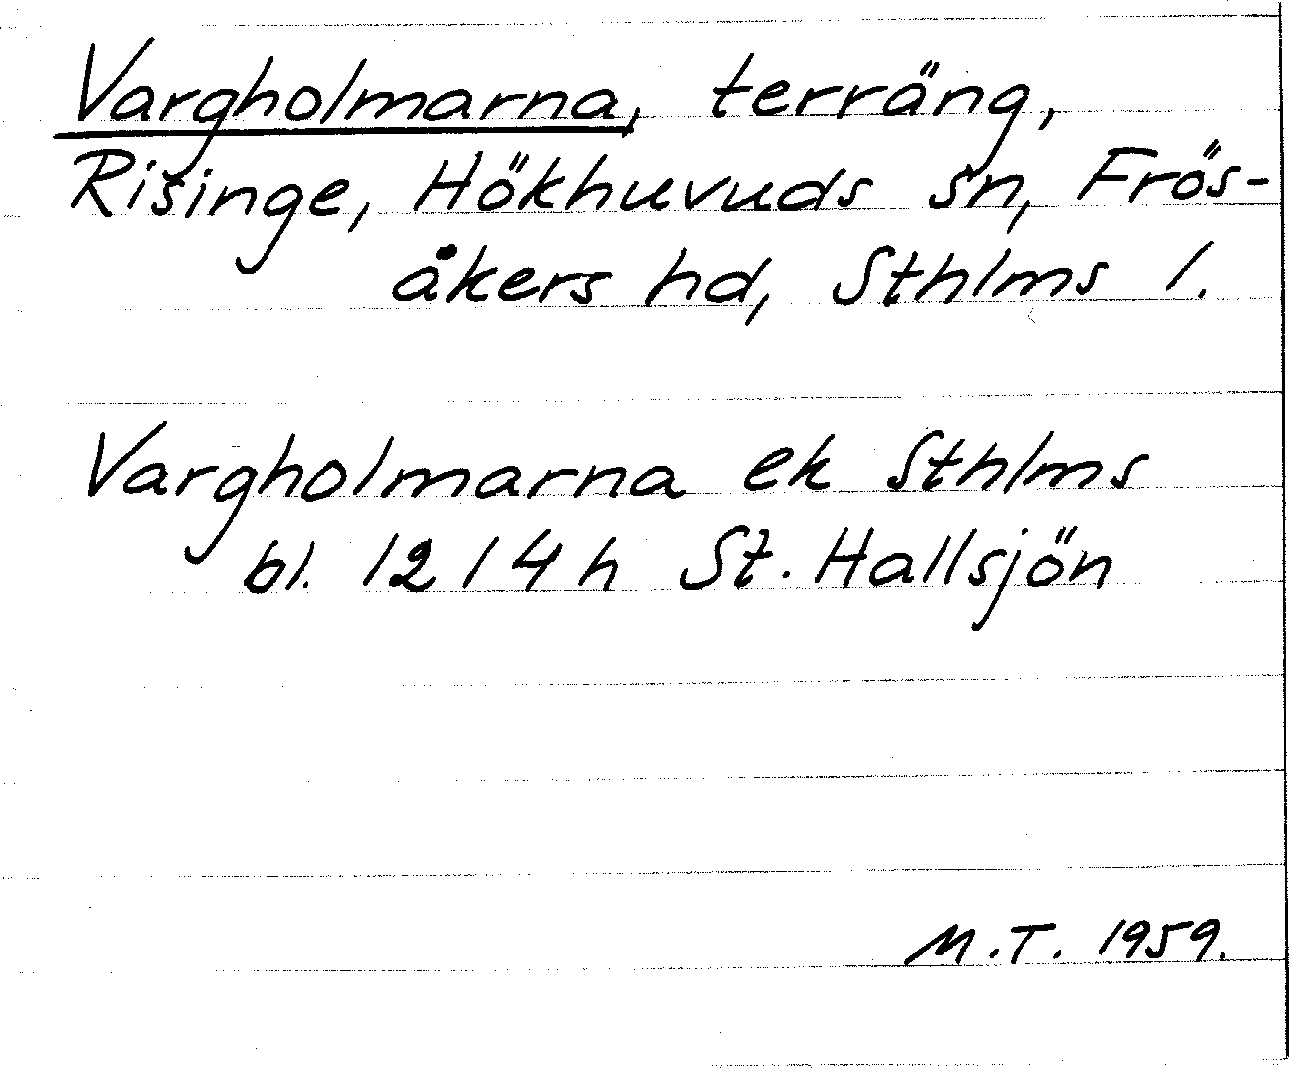 Vargholmarna, terräng,
Risinge, Hökhuvuds sn, Frös-
åkers hd, Sthlms l.
Vargholmarna ek Sthlms
bl. 12 / 4 h St. Hallsjön
M.T. 1959.